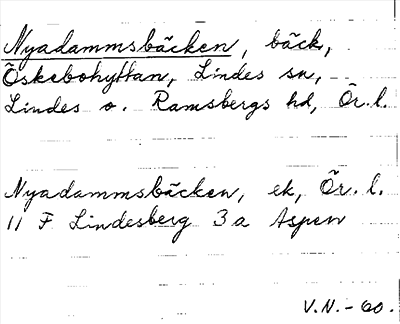 Nyadammsbäcken, bäck,
Öskebohyttan, Lindes sn,
Lindes o. Ramsbergs hd, Ör. l.
Nyadammsbäcken, ek, Ör. l.
11 F Lindesberg 3 a Aspen
V.N. - 60.